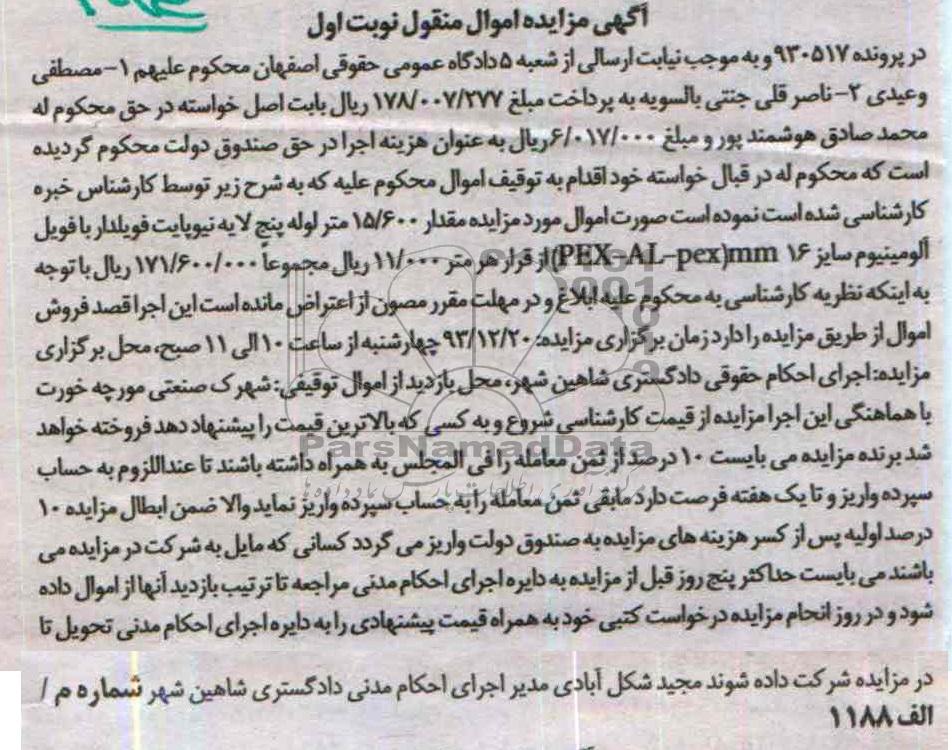 آگهی مزایده اموال منقول نوبت اول
در پرونده ۹۳۰۵۱۷ و به موجب نیابت ارسالی از شعبه ۵ دادگاه عمومی حقوقی اصفهان محکوم علیهم ۱- مصطفی
وعیدی ۲- ناصر قلی جنتی بالسویه به پرداخت مبلغ ۱۷۸/۰۰۷/۲۷۷ ریال بابت اصل خواسته در حق محکوم له
محمد صادق هوشمند پور و مبلغ ۶/۰۱۷/۰۰۰ ریال به عنوان هزینه اجرا در حق صندوق دولت محکوم گردیده
است که محکوم له در قبال خواسته خود اقدام به توقیف اموال محکوم علیه که به شرح زیر توسط کارشناس خبره
کارشناسی شده است نموده است صورت اموال مورد مزایده مقدار ۱۵/۶۰۰ متر لوله پنج لایه نیوپایت فویلدار با فویل
آلومینیوم سایز ۱۶ PEX-AL-pex)mm) از قرار هر متر ۱۱/۰۰۰ ریال مجموعاً ۱۷۱/۶۰۰/۰۰۰ ریال با توجه
به اینکه نظریه کارشناسی به محکوم علیه ابلاغ و در مهلت مقرر مصون از اعتراض مانده است این اجرا قصد فروش
اموال از طریق مزایده را دارد زمان برگزاری مزایده: ۹۳/۱۲/۲۰ چهارشنبه از ساعت ۱۰ الی ۱۱ صبح، محل برگزاری
مزایده: اجرای احکام حقوقی دادگستری شاهین شهر، محل بازدید از اموال توقیفی: شهرک صنعتی مورچه خورت
با هماهنگی این اجرا مزایده از قیمت کارشناسی شروع و به کسی که بالاترین قیمت را پیشنهاد دهد فروخته خواهد
شد برنده مزایده می بایست ۱۰ درصد از ثمن معامله را فی المجلس به همراه داشته باشند تا عنداللزوم به حساب
سپرده واریز و تا یک هفته فرصت دارد مابقی ثمن معامله را به حساب سپرده واریز نماید والا ضمن ابطال مزایده ۱۰
درصد اولیه پس از کسر هزینه های مزایده به صندوق دولت واریز می گردد کسانی که مایل به شرکت در مزایده می
باشند می بایست حداکثر پنج روز قبل از مزایده به دایره اجرای احکام مدنی مراجعه تا ترتیب بازدید آنها از اموال داده
شود و در روز انجام مزایده درخواست کتبی خود به همراه قیمت پیشنهادی را به دایره اجرای احکام مدنی تحویل تا
در مزایده شرکت داده شوند مجید شکل آبادی مدیر اجرای احکام مدنی دادگستری شاهین شهر شماره م /
الف ۱۱۸۸
ParsNamadData